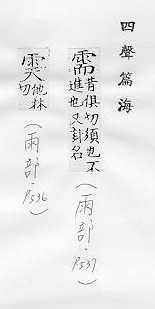 四聲篇海
需昔俱切須也不
進也又卦名
（雨部·P537）
他林
切
（雨部·P536）